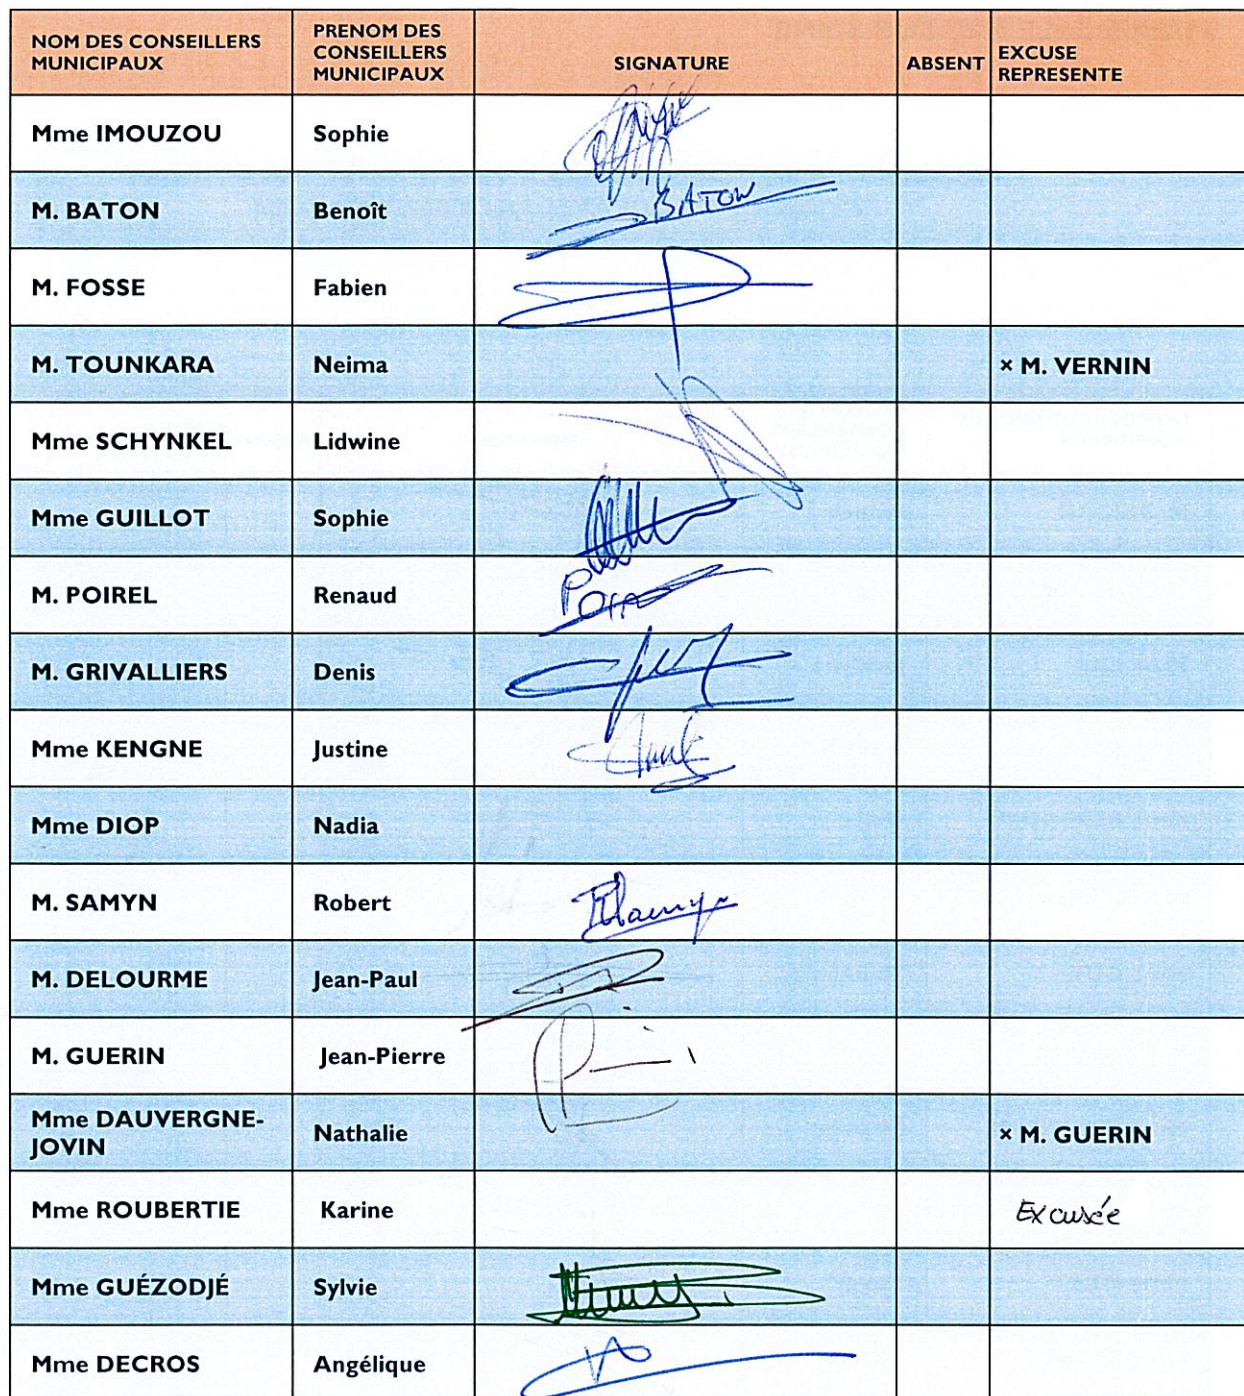 NOM DES CONSEILLERS MUNICIPAUX PRENOM DES CONSEILLERS MUNICIPAUX SIGNATURE ABSENT EXCUSE REPRESENTE
Mme IMOUZOU Sophie
M. BATON Benoît BATON
M. FOSSE Fabien
M. TOUNKARA Neima × M. VERNIN
Mme SCHYNKEL Lidwine
Mme GUILLOT Sophie
M. POIREL Renaud
M. GRIVALLIERS Denis
Mme KENGNE Justine
Mme DIOP Nadia
M. SAMYN Robert
M. DELOURME Jean-Paul
M. GUERIN Jean-Pierre
Mme DAUVERGNE-JOVIN Nathalie × M. GUERIN
Mme ROUBERTIE Karine Excusée
Mme GUÉZODJÉ Sylvie
Mme DECROS Angélique